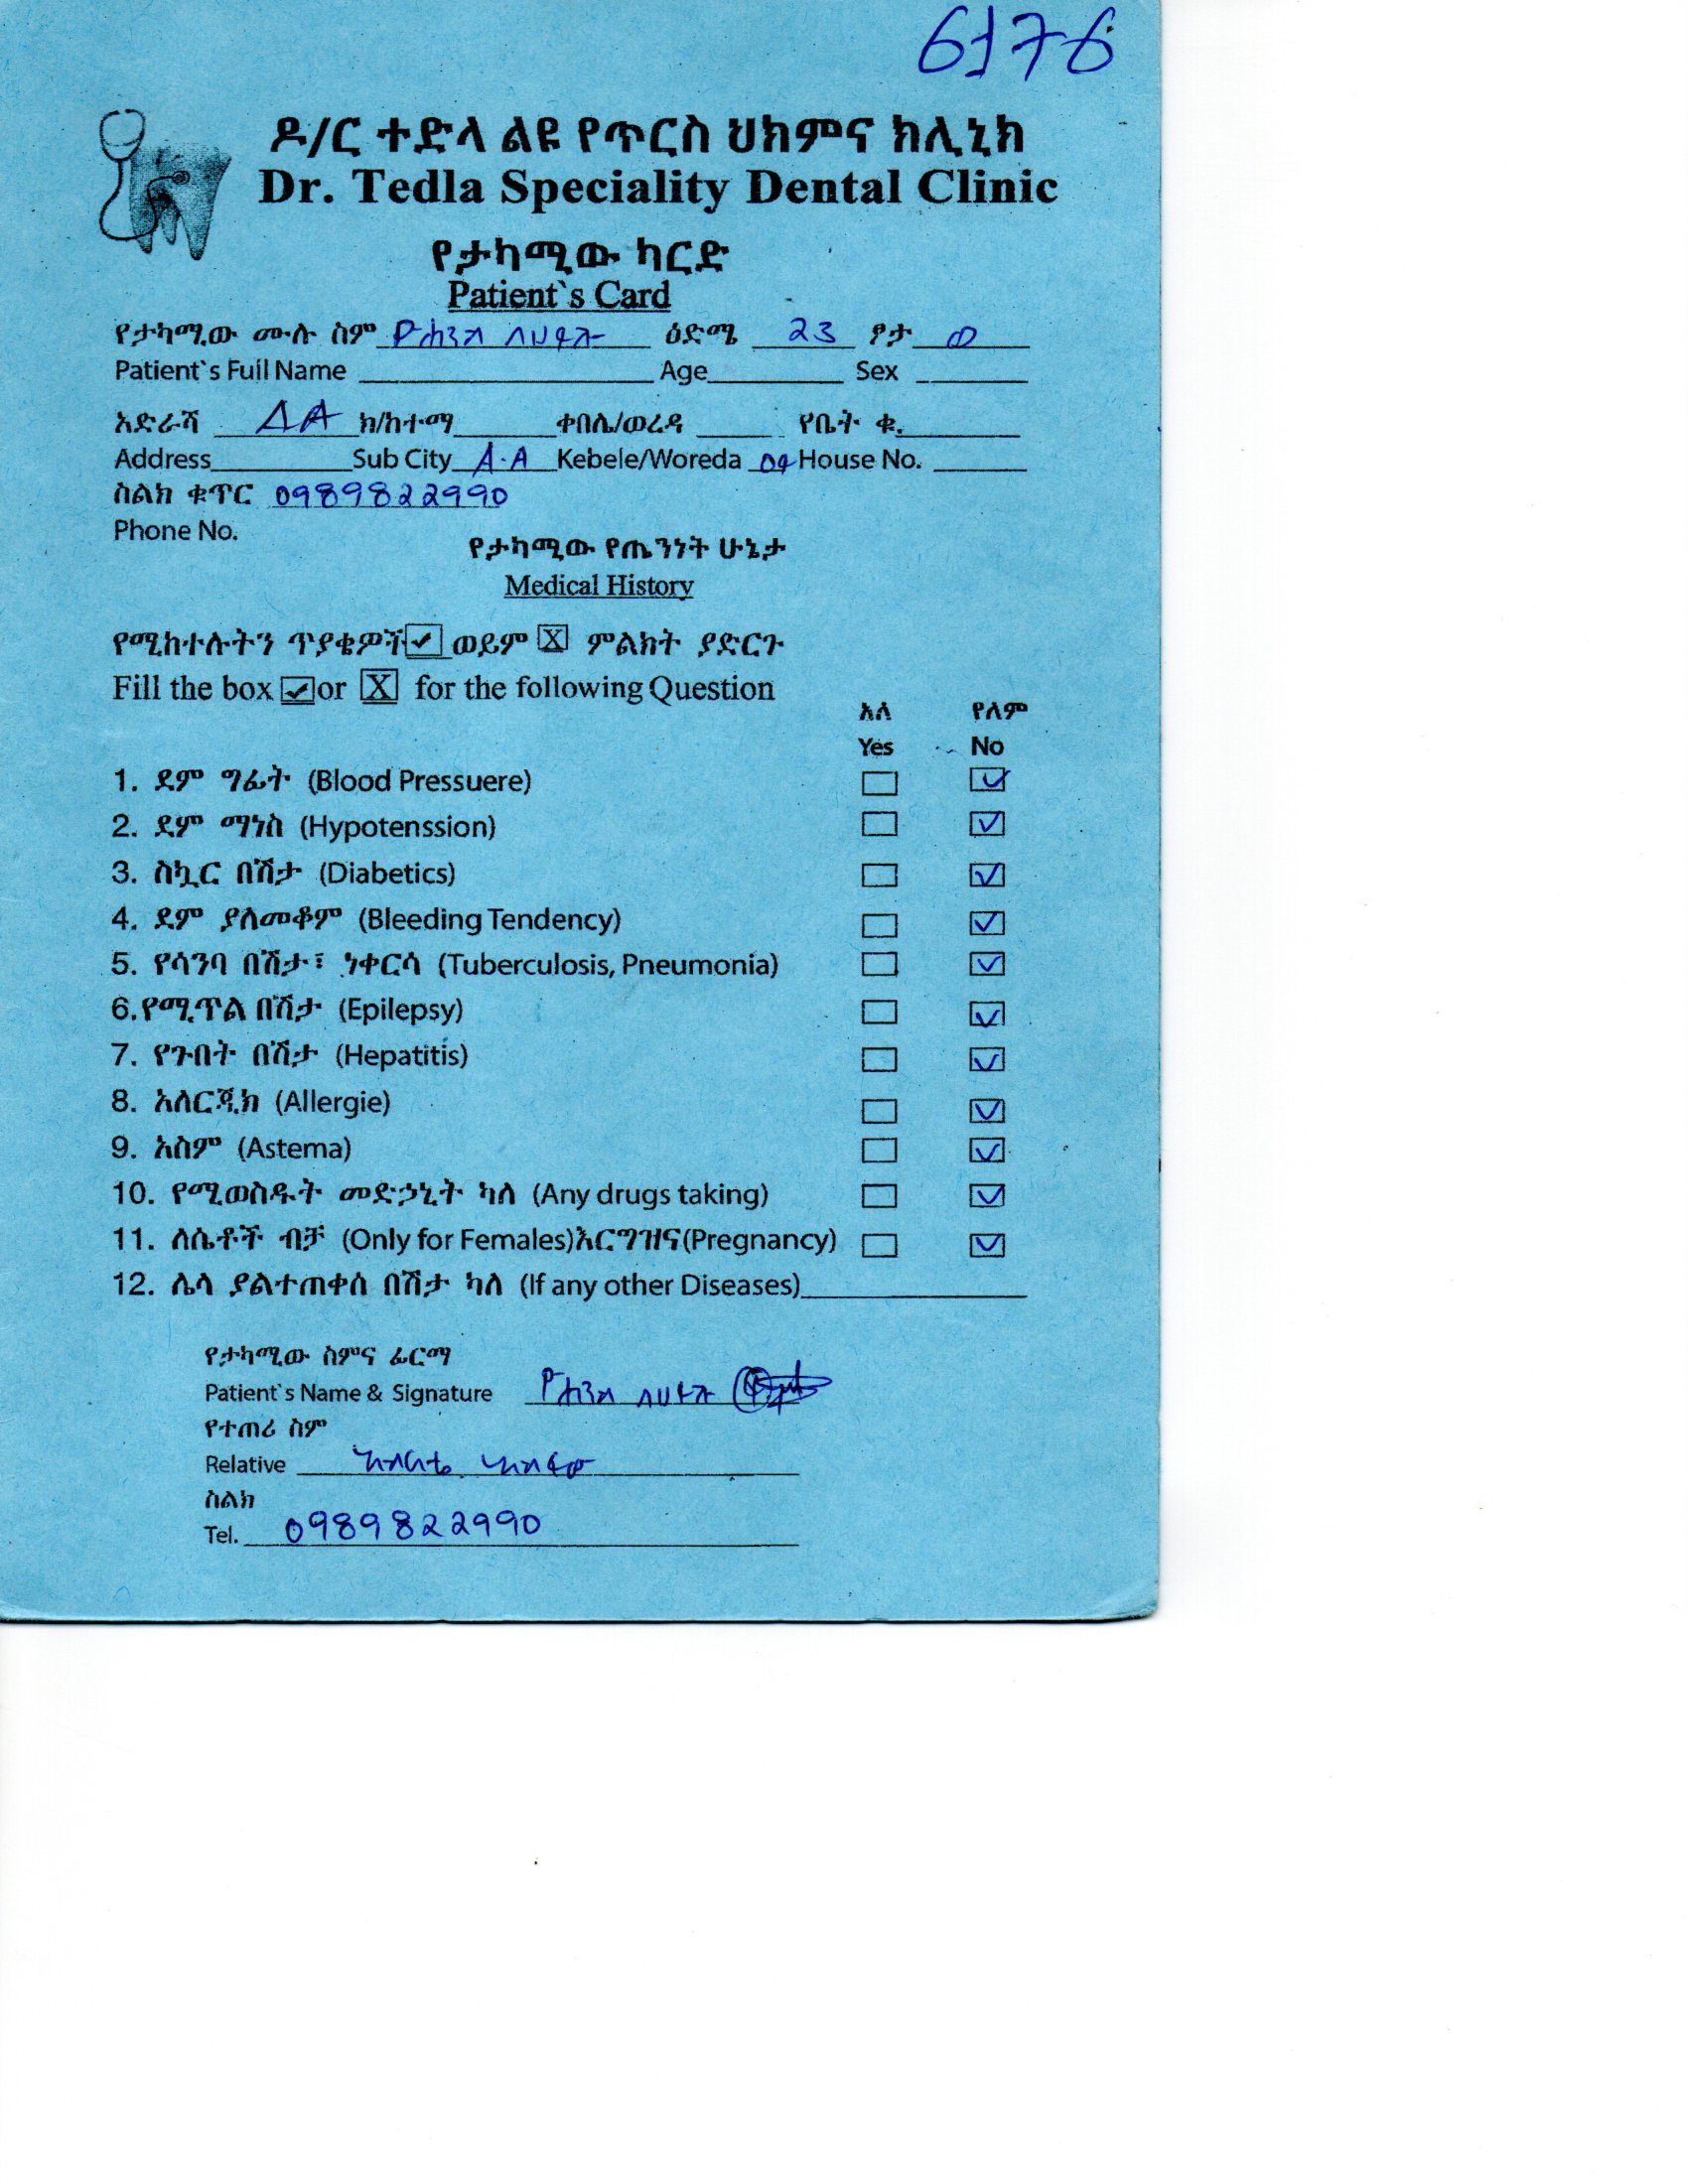 6176
ዶ/ር ተድላ ልዩ የጥርስ ህክምና ክሊኒክ
Dr. Tedla Speciality Dental Clinic
የታካሚው ካርድ
Patient`s Card
የታካሚው ሙሉ ስም ዕድሜ 23 ፆታ ወ
Patient`s Full Name Age Sex
አድራሻ AA ክ/ከተማ ቀበሌ/ወረዳ የቤት ቁ.
Address Sub City A.A Kebele/Woreda 04 House No.
ስልክ ቁጥር 0989822990
Phone No.
የታካሚው የጤንነት ሁኔታ
Medical History
የሚከተሉትን ጥያቄዎች ✓ ወይም X ምልክት ያድርጉ
Fill the box ✓ or X for the following Question
አለ የለም
Yes No
1. ደም ግፊት (Blood Pressuere) ☐ ☑
2. ደም ማነስ (Hypotenssion) ☐ ☑
3. ስኳር በሽታ (Diabetics) ☐ ☑
4. ደም ያለመቆም (Bleeding Tendency) ☐ ☑
5. የሳንባ በሽታ፣ ነቀርሳ (Tuberculosis, Pneumonia) ☐ ☑
6.የሚጥል በሽታ (Epilepsy) ☐ ☑
7. የጉበት በሽታ (Hepatitis) ☐ ☑
8. አለርጂክ (Allergie) ☐ ☑
9. አስም (Astema) ☐ ☑
10. የሚወስዱት መድኃኒት ካለ (Any drugs taking) ☐ ☑
11. ለሴቶች ብቻ (Only for Females)እርግዝና(Pregnancy) ☐ ☑
12. ሌላ ያልተጠቀሰ በሽታ ካለ (If any other Diseases)
የታካሚው ስምና ፊርማ
Patient`s Name & Signature
የተጠሪ ስም
Relative
ስልክ
Tel. 0989822990